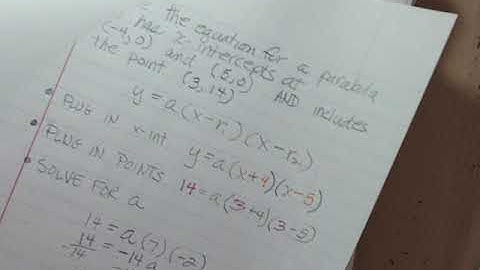 the equation for a parabola
has x-intercepts at
(-4,0) and (5,0) AND includes
the point (3,14)
y = a(x-r₁)(x-r₂)
• PLUG IN x-int y = a(x+4)(x-5)
• PLUG IN POINTS 14 = a(3+4)(3-5)
• SOLVE FOR a
14 = a(7)(-2)
14 = -14a
-14